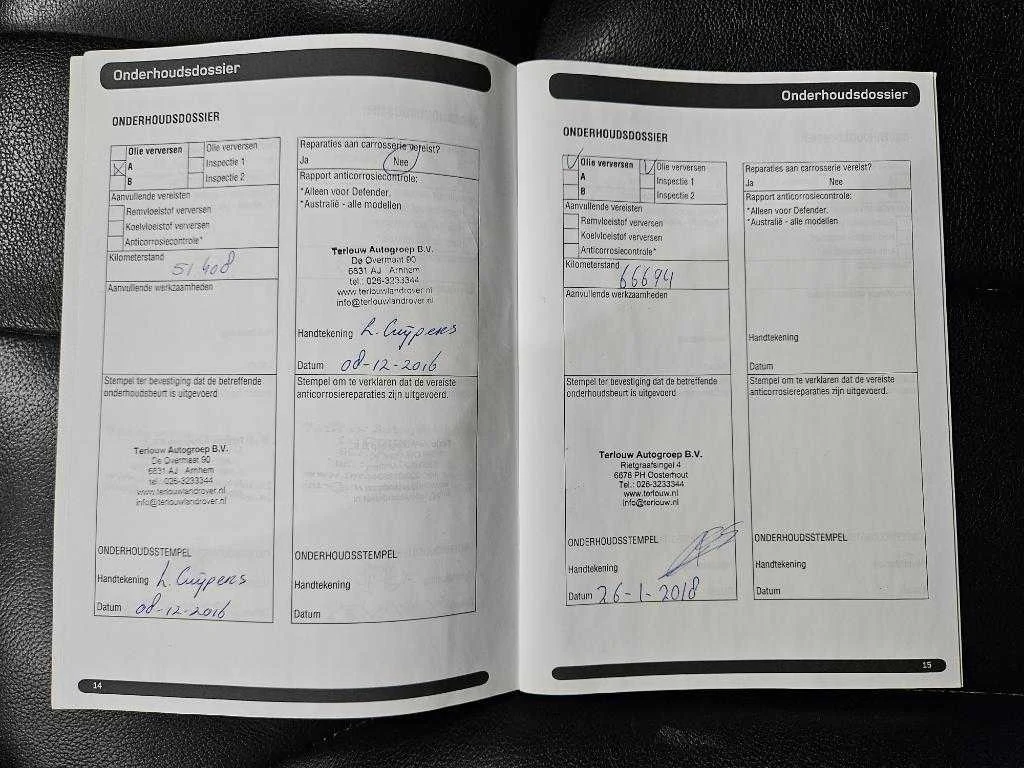 Onderhoudsdossier
ONDERHOUDSDOSSIER
Olie verversen
A
B
Olie verversen
Inspectie 1
Inspectie 2
Aanvullende vereisten
Remvloeistof verversen
Koelvloeistof verversen
Anticorrosiecontrole*
Kilometerstand
51.408
Aanvullende werkzaamheden
Stempel ter bevestiging dat de betreffende
onderhoudsbeurt is uitgevoerd
Terlouw Autogroep B.V.
De Overmaat 90
6831 AJ Arnhem
tel.: 026-3233344
www.terlouwlandrover.nl
info@terlouwlandrover.nl
ONDERHOUDSSTEMPEL
Handtekening L. Cuypers
Datum 08-12-2016
Reparaties aan carrosserie vereist?
Ja Nee
Rapport anticorrosiecontrole:
*Alleen voor Defender.
*Australië - alle modellen
Terlouw Autogroep B.V.
De Overmaat 90
6831 AJ Arnhem
tel.: 026-3233344
www.terlouwlandrover.nl
info@terlouwlandrover.nl
Handtekening L. Cuypers
Datum 08-12-2016
Stempel om te verklaren dat de vereiste
anticorrosiereparaties zijn uitgevoerd.
ONDERHOUDSSTEMPEL
Handtekening
Datum
14
Onderhoudsdossier
ONDERHOUDSDOSSIER
Olie verversen
A
B
Olie verversen
Inspectie 1
Inspectie 2
Aanvullende vereisten
Remvloeistof verversen
Koelvloeistof verversen
Anticorrosiecontrole*
Kilometerstand
66694
Aanvullende werkzaamheden
Stempel ter bevestiging dat de betreffende
onderhoudsbeurt is uitgevoerd
Terlouw Autogroep B.V.
Rietgraafsingel 4
6678 PH Oosterhout
Tel.: 026-3233344
www.terlouw.nl
info@terlouw.nl
ONDERHOUDSSTEMPEL
Handtekening
Datum 26-1-2018
Reparaties aan carrosserie vereist?
Ja Nee
Rapport anticorrosiecontrole:
*Alleen voor Defender.
*Australië - alle modellen
Handtekening
Datum
Stempel om te verklaren dat de vereiste
anticorrosiereparaties zijn uitgevoerd.
ONDERHOUDSSTEMPEL
Handtekening
Datum
15